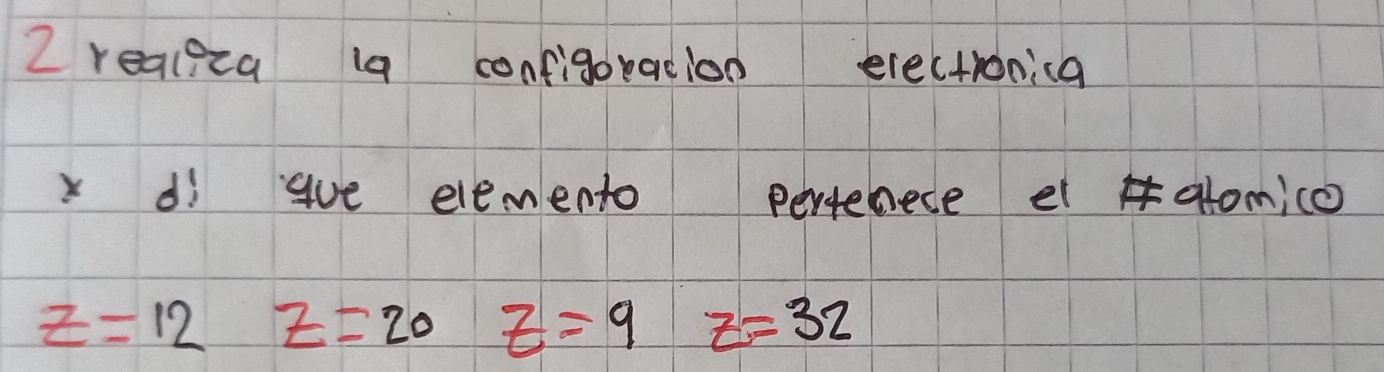 2 realiza la configoracion electronica
y di que elemento pertenece el # atomico
Z=12 Z=20 Z=9 Z=32